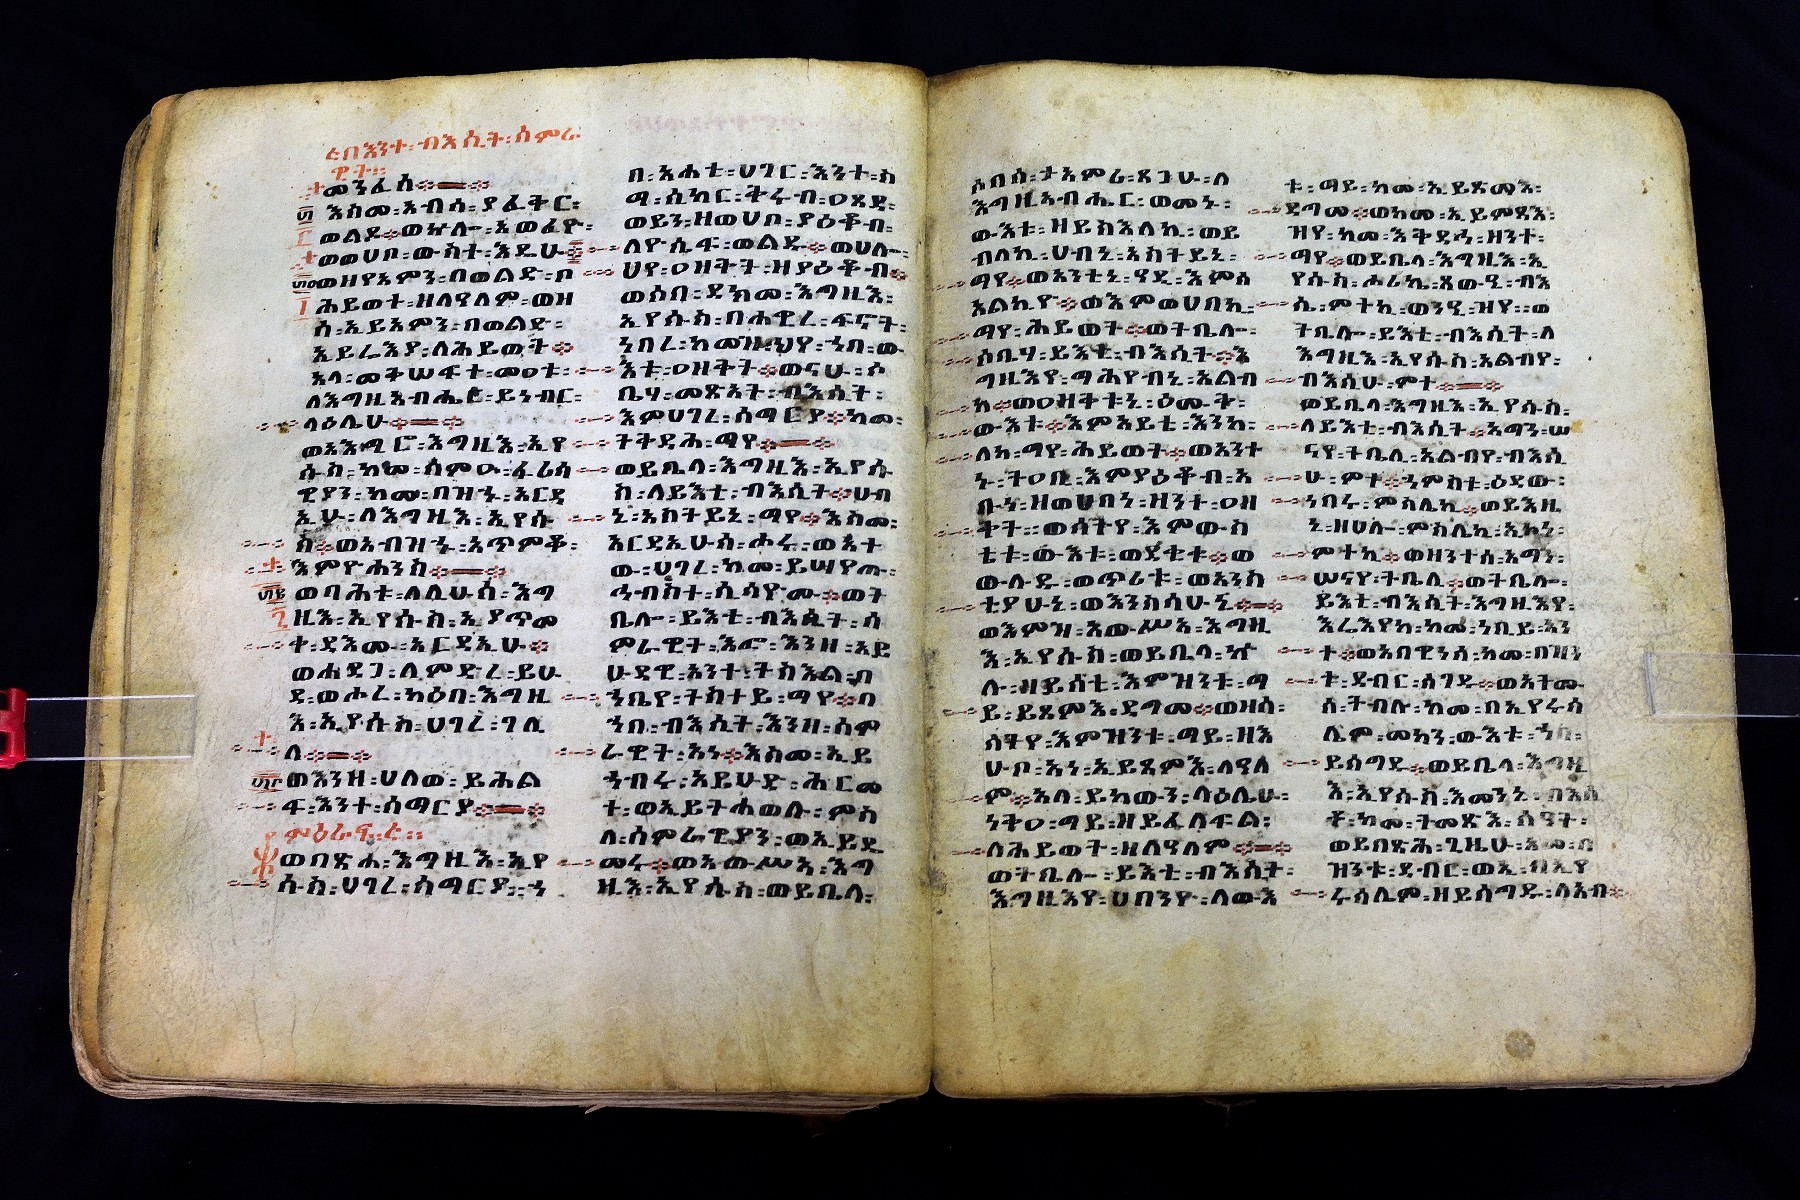 ፬ በእንተ ፡ ብእሲት ፡ ሳምራ
ዊት ።
መንፈሰ ።
እስመ ፡ አብሰ ፡ ያፈቅር ፡
ወልዶ ። ወኵሎ ፡ አወፈዮ ፡
ወወሀቦ ፡ ውስተ ፡ እዴሁ ።
ወዘየአምን ፡ በወልድ ፡ ቦ
ሕይወት ፡ ዘለዓለም ፡ ወዘ
ሰ ፡ ኢይአምን ፡ በወልድ ፡
ኢይሬእያ ፡ ለሕይወት ።
አላ ፡ መቅሠፍተ ፡ መዐቱ ፡
ለእግዚአብሔር ፡ ይነብር ፡
ላዕሌሁ ።
ወአእሚሮ ፡ እግዚእ ፡ ኢየ
ሱስ ፡ ከመ ፡ ሰምዑ ፡ ፈሪሳ
ዊያን ፡ ከመ ፡ በዝኁ ፡ አርዳ
ኢሁ ፡ ለእግዚእ ፡ ኢየሱ
ስ ። ወአብዝኀ ፡ አጥምቆ ፡
እምዮሐንስ ።
ወባሕቱ ፡ ለሊሁሰ ፡ እግ
ዚእ ፡ ኢየሱስ ፡ ኢያጥመ
ቀ ፡ ዳእሙ ፡ አርዳኢሁ ።
ወሐደጋ ፡ ለምድረ ፡ ይሁ
ዳ ፡ ወሖረ ፡ ካዕበ ፡ እግዚ
እ ፡ ኢየሱስ ፡ ሀገረ ፡ ገሊ
ላ ።
ወእንዘ ፡ ሀለወ ፡ ይሕል
ፍ ፡ እንተ ፡ ሰማርያ ።
ምዕራፍ ፡ ፬ ።
ወበጽሐ ፡ እግዚእ ፡ ኢየ
ሱስ ፡ ሀገረ ፡ ሰማርያ ፡ ኀ
በ ፡ አሐቲ ፡ ሀገር ፡ እንተ ፡ ስ
ማ ፡ ሲካር ፡ ቅሩብ ፡ ዐጸደ ፡
ወይን ፡ ዘወሀቦ ፡ ያዕቆብ ፡
ለዮሴፍ ፡ ወልዱ ። ወሀሎ ፡
ህየ ፡ ዐዘቅት ፡ ዘያዕቆብ ።
ወሶበ ፡ ደክመ ፡ እግዚእ ፡
ኢየሱስ ፡ በሐዊረ ፡ ፍኖት ፡
ነበረ ፡ ከመዝ ፡ ህየ ፡ ኀበ ፡ ው
እቱ ፡ ዐዘቅት ። ወናሁ ፡ ሶ
ቤሃ ፡ መጽአት ፡ ብእሲት ፡
እምሀገረ ፡ ሰማርያ ። ከመ ፡
ትቅዳሕ ፡ ማየ ።
ወይቤላ ፡ እግዚእ ፡ ኢየሱ
ስ ፡ ለይእቲ ፡ ብእሲት ። ሀብ
ኒ ፡ አስትይኒ ፡ ማየ ። እስመ ፡
አርዳኢሁሰ ፡ ሖሩ ፡ ወአተ
ው ፡ ሀገረ ፡ ከመ ፡ ይሣየጡ ፡
ኅብስተ ፡ ሲሳዮሙ ። ወት
ቤሎ ፡ ይእቲ ፡ ብእሲት ፡ ሳ
ምራዊት ፡ እፎ ፡ እንዘ ፡ አይ
ሁዳዊ ፡ አንተ ፡ ትስእል ፡ በ
ኀቤየ ፡ ትስተይ ፡ ማየ ። በ
ኀበ ፡ ብእሲት ፡ እንዘ ፡ ሳም
ራዊት ፡ አነ ። እስመ ፡ ኢይ
ኀብሩ ፡ አይሁድ ፡ ሕርመ
ተ ፡ ወኢይትሐወሉ ፡ ምስ
ለ ፡ ሳምራዊያን ፡ ወኢይዴ
መሩ ። ወአውሥአ ፡ እግ
ዚእ ፡ ኢየሱስ ፡ ወይቤላ ፡
ሶበሰ ፡ ታአምሪ ፡ ጸጋሁ ፡ ለ
እግዚአብሔር ፡ ወመኑ ፡
ውእቱ ፡ ዘይስእለኪ ፡ ወይ
ብለኪ ፡ ሀብኒ ፡ አስትይኒ ፡
ማየ ። ወአንቲኒ ፡ ዓዲ ፡ እምሰ
አልኪዮ ። ወእምወሀበኪ ፡
ማየ ፡ ሕይወት ። ወትቤሎ ፡
ሶቤሃ ፡ ይእቲ ፡ ብእሲት ። እ
ግዚእየ ፡ ማሕየብኒ ፡ አልብ
ከ ። ወዐዘቅቱኒ ፡ ዕሙቅ ፡
ውእቱ ። እምአይቴ ፡ እንከ ፡
ለከ ፡ ማየ ፡ ሕይወት ። ወአንተ
ኑ ፡ ተዐቢ ፡ እምያዕቆብ ፡ አ
ቡነ ፡ ዘወሀበነ ፡ ዘንተ ፡ ዐዘ
ቅተ ። ወሰትየ ፡ እምውስ
ቴቱ ፡ ውእቱ ፡ ወደቂቁ ። ወ
ውሉዱ ፡ ወጥሪቱ ፡ ወአንስ
ቲያሁኒ ፡ ወእንስሳሁኒ ።
ወእምዝ ፡ አውሥአ ፡ እግዚ
እ ፡ ኢየሱስ ፡ ወይቤላ ፡ ኵ
ሉ ፡ ዘይሰቲ ፡ እምዝንቱ ፡ ማ
ይ ፡ ይጸምእ ፡ ዳግመ ። ወዘሰ ፡
ሰትየ ፡ እምዝንቱ ፡ ማይ ፡ ዘእ
ሁቦ ፡ አነ ፡ ኢይጸምእ ፡ ለዓለ
ም ። አላ ፡ ይከውን ፡ ላዕሌሁ ፡
ነቅዐ ፡ ማይ ፡ ዘይፈለፍል ፡
ለሕይወት ፡ ዘለዓለም ።
ወትቤሎ ፡ ይእቲ ፡ ብእሲት ፡
እግዚእየ ፡ ሀበንዮ ፡ ለውእ
ቱ ፡ ማይ ፡ ከመ ፡ ኢይጽማእ ፡
ዳግመ ። ወከመ ፡ ኢይምጻእ ፡
ዝየ ፡ ከመ ፡ እቅዳሕ ፡ ዘንተ ፡
ማየ ። ወይቤላ ፡ እግዚእ ፡ ኢ
የሱስ ፡ ሖሪኬ ፡ ጸውዒ ፡ ብእ
ሴ ፡ ምተኪ ፡ ወንዒ ፡ ዝየ ። ወ
ትቤሎ ፡ ይእቲ ፡ ብእሲት ፡ ለ
እግዚእ ፡ ኢየሱስ ፡ አልብየ ፡
ብእሰ ፡ ምተ ።
ወይቤላ ፡ እግዚእ ፡ ኢየሱስ ፡
ለይእቲ ፡ ብእሲት ። አማን ፡ ሠ
ናየ ፡ ትቤሊ ፡ አልብየ ፡ ብእሲ
ሁ ፡ ምተ ። ኀምስተ ፡ ዕደው ፡
ነበሩ ፡ ምስሌኪ ፡ ወይእዜ
ኒ ፡ ዘሀሎ ፡ ምስሌኪ ፡ ኢኮነ ፡
ምተኪ ። ወዘንተሰ ፡ አማን ፡
ሠናየ ፡ ትቤሊ ። ወትቤሎ ፡
ይእቲ ፡ ብእሲት ፡ እግዚእየ ፡
እሬእየከ ፡ ከመ ፡ ነቢይ ፡ አን
ተ ። ወአበዊነሰ ፡ ከመ ፡ በዝን
ቱ ፡ ደብር ፡ ሰገዱ ። ወአትሙ
ሰ ፡ ትብሉ ፡ ከመ ፡ በኢየሩሳ
ሌም ፡ መካን ፡ ውእቱ ፡ ኀበ ፡
ይሰግዱ ። ወይቤላ ፡ እግዚ
እ ፡ ኢየሱስ ፡ እመንኒ ፡ ብእሲ
ቶ ፡ ከመ ፡ ትመጽእ ፡ ሰዓት ፡
ወይበጽሕ ፡ ጊዜሁ ፡ አመ ፡ በ
ዝንቱ ፡ ደብር ፡ ወኢ ፡ በኢየ
ሩሳሌም ፡ ዘይሰግዱ ፡ ለአብ ።